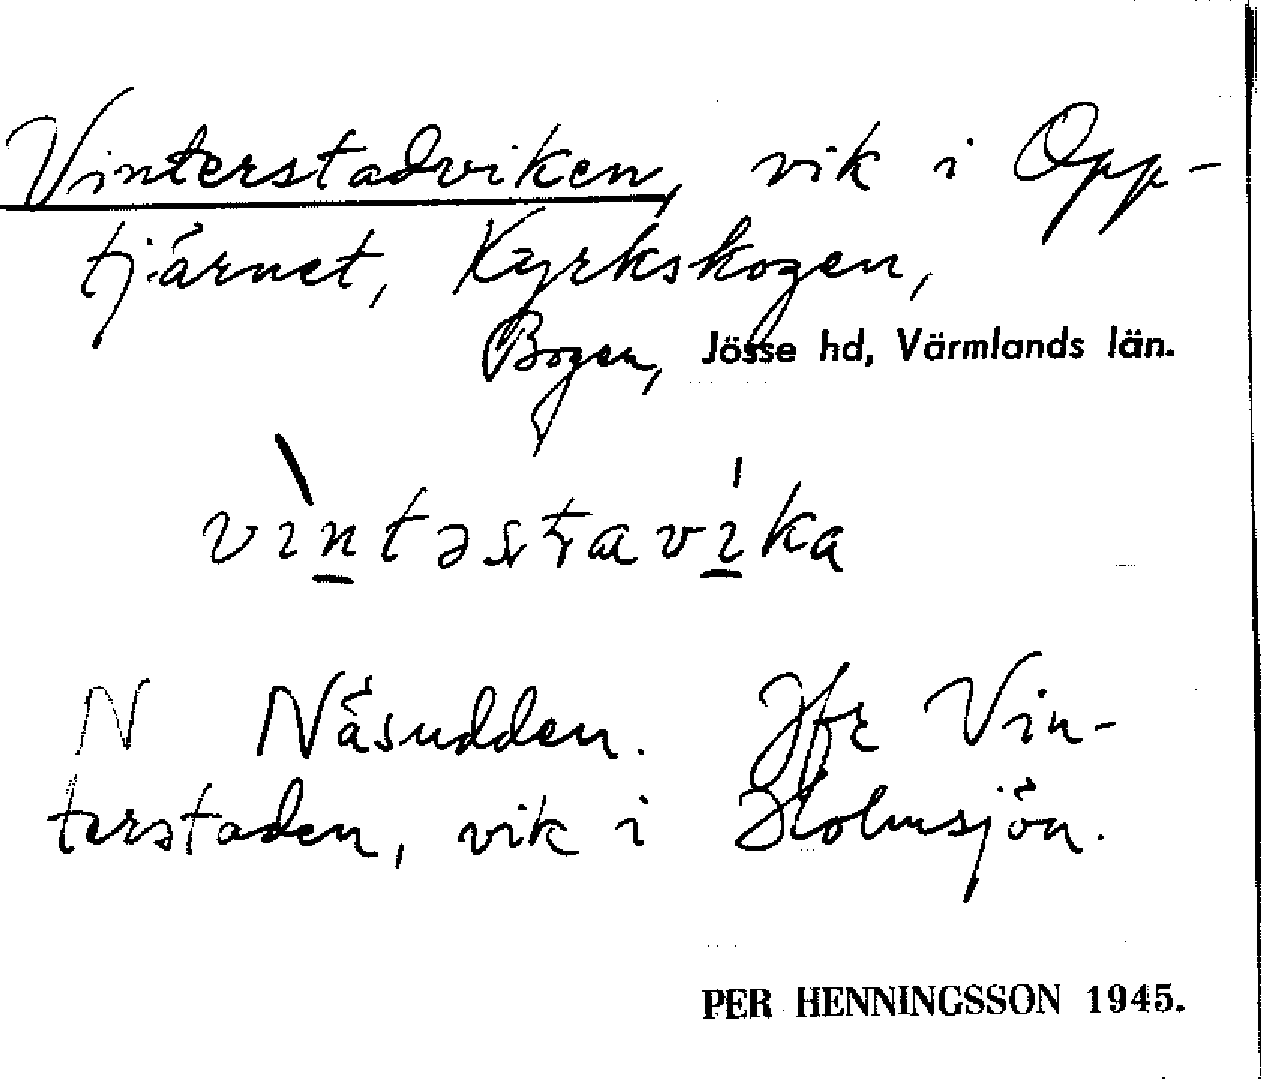 Vinterstadviken, vik i Opp-
tjärnet, Kyrkskogen,
Bogen, Jösse hd, Värmlands län.
vìn̲təstavi̲ka
N Näsudden. Jfr Vin-
terstaden, vik i Holmsjön.
PER HENNINGSSON 1945.